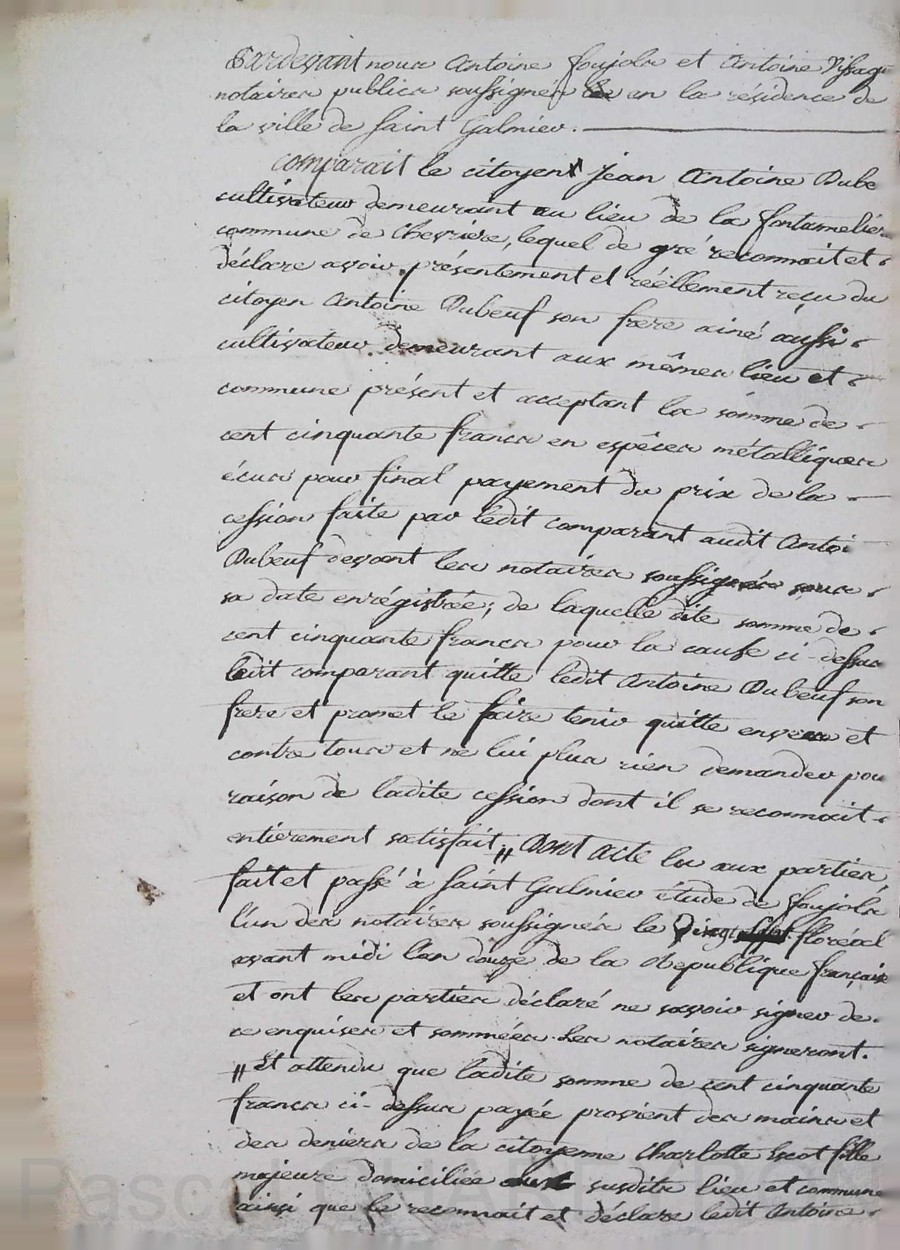 Pardevant nous Antoine Joujols et Antoine
notaires publics soussignés en la résidence de
la ville de Saint Galmier.
comparait le citoyen Jean Antoine Dube
cultivateur demeurant au lieu de la
commune de Chevriere, lequel de gré reconnait et
déclare avoir présentement et réellement reçu du
citoyen Antoine Dubeuf son frere ainé aussi
cultivateur demeurant aux mêmes lieu et
commune présent et acceptant la somme de
cent cinquante francs en espêces métalliques
écus pour final payement du prix de la
cession faite par ledit comparant audit Antoi
Dubeuf devant les notaires soussignés sous
sa date enrégistrée; de laquelle dite somme de
cent cinquante francs pour la cause ci-dessus
ledit comparant quitte ledit Antoine Dubeuf son
frere et promet le faire tenir quitte envers et
contre tous et ne lui plus rien demander pou
raison de ladite cession dont il se reconnait
entierement satisfait,, Dont acte lu aux parties
fait et passé à Saint Galmier étude de Joujols
l'un des notaires soussignés le vingt floréal
avant midi l'an douze de la Republique française
et ont les parties déclaré ne savoir signer de
ce enquises et sommées. Les notaires signeront.
,, Et attendu que ladite somme de cent cinquante
francs ci-dessus payée provient des mains et
des deniers de la citoyenne Charlotte fille
majeure domiciliée susdits lieu et commune
ainsi que le reconnait et déclare ledit Antoine
Pascal